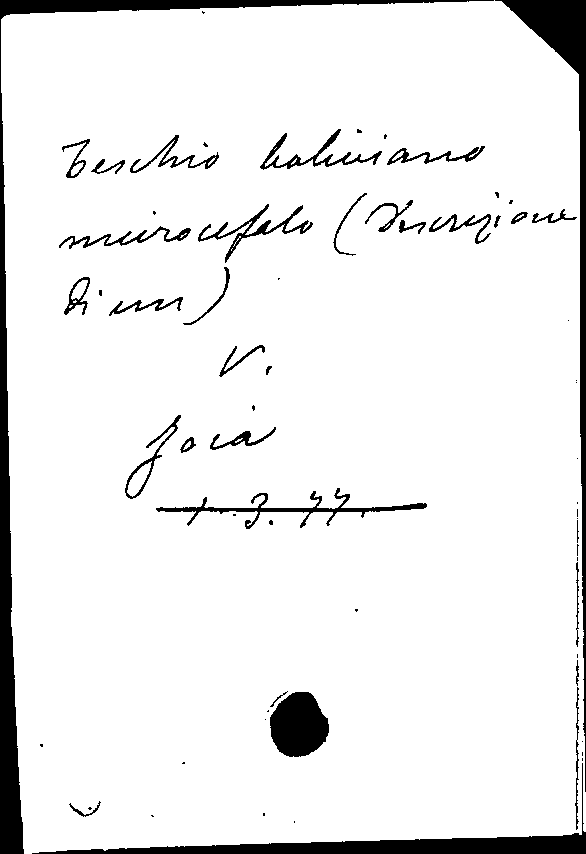 Teschio boliviano
microcefalo (Descrizione
di un)
V.
Joia
1. 3. 77.